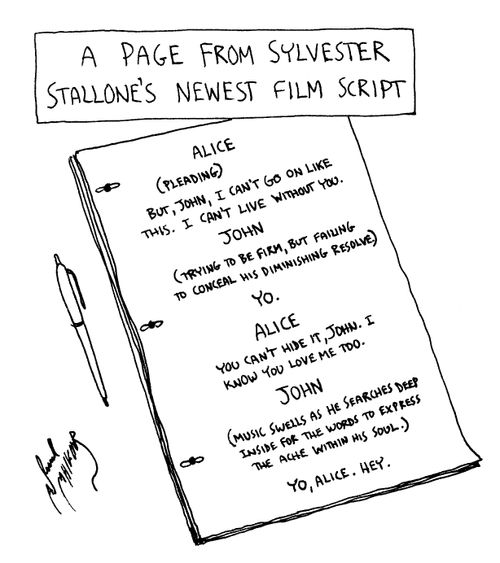 A PAGE FROM SYLVESTER
STALLONE'S NEWEST FILM SCRIPT
ALICE
(PLEADING)
BUT, JOHN, I CAN'T GO ON LIKE
THIS. I CAN'T LIVE WITHOUT YOU.
JOHN
(TRYING TO BE FIRM, BUT FAILING
TO CONCEAL HIS DIMINISHING RESOLVE)
YO.
ALICE
YOU CAN'T HIDE IT, JOHN. I
KNOW YOU LOVE ME TOO.
JOHN
(MUSIC SWELLS AS HE SEARCHES DEEP
INSIDE FOR THE WORDS TO EXPRESS
THE ACHE WITHIN HIS SOUL.)
YO, ALICE. HEY.